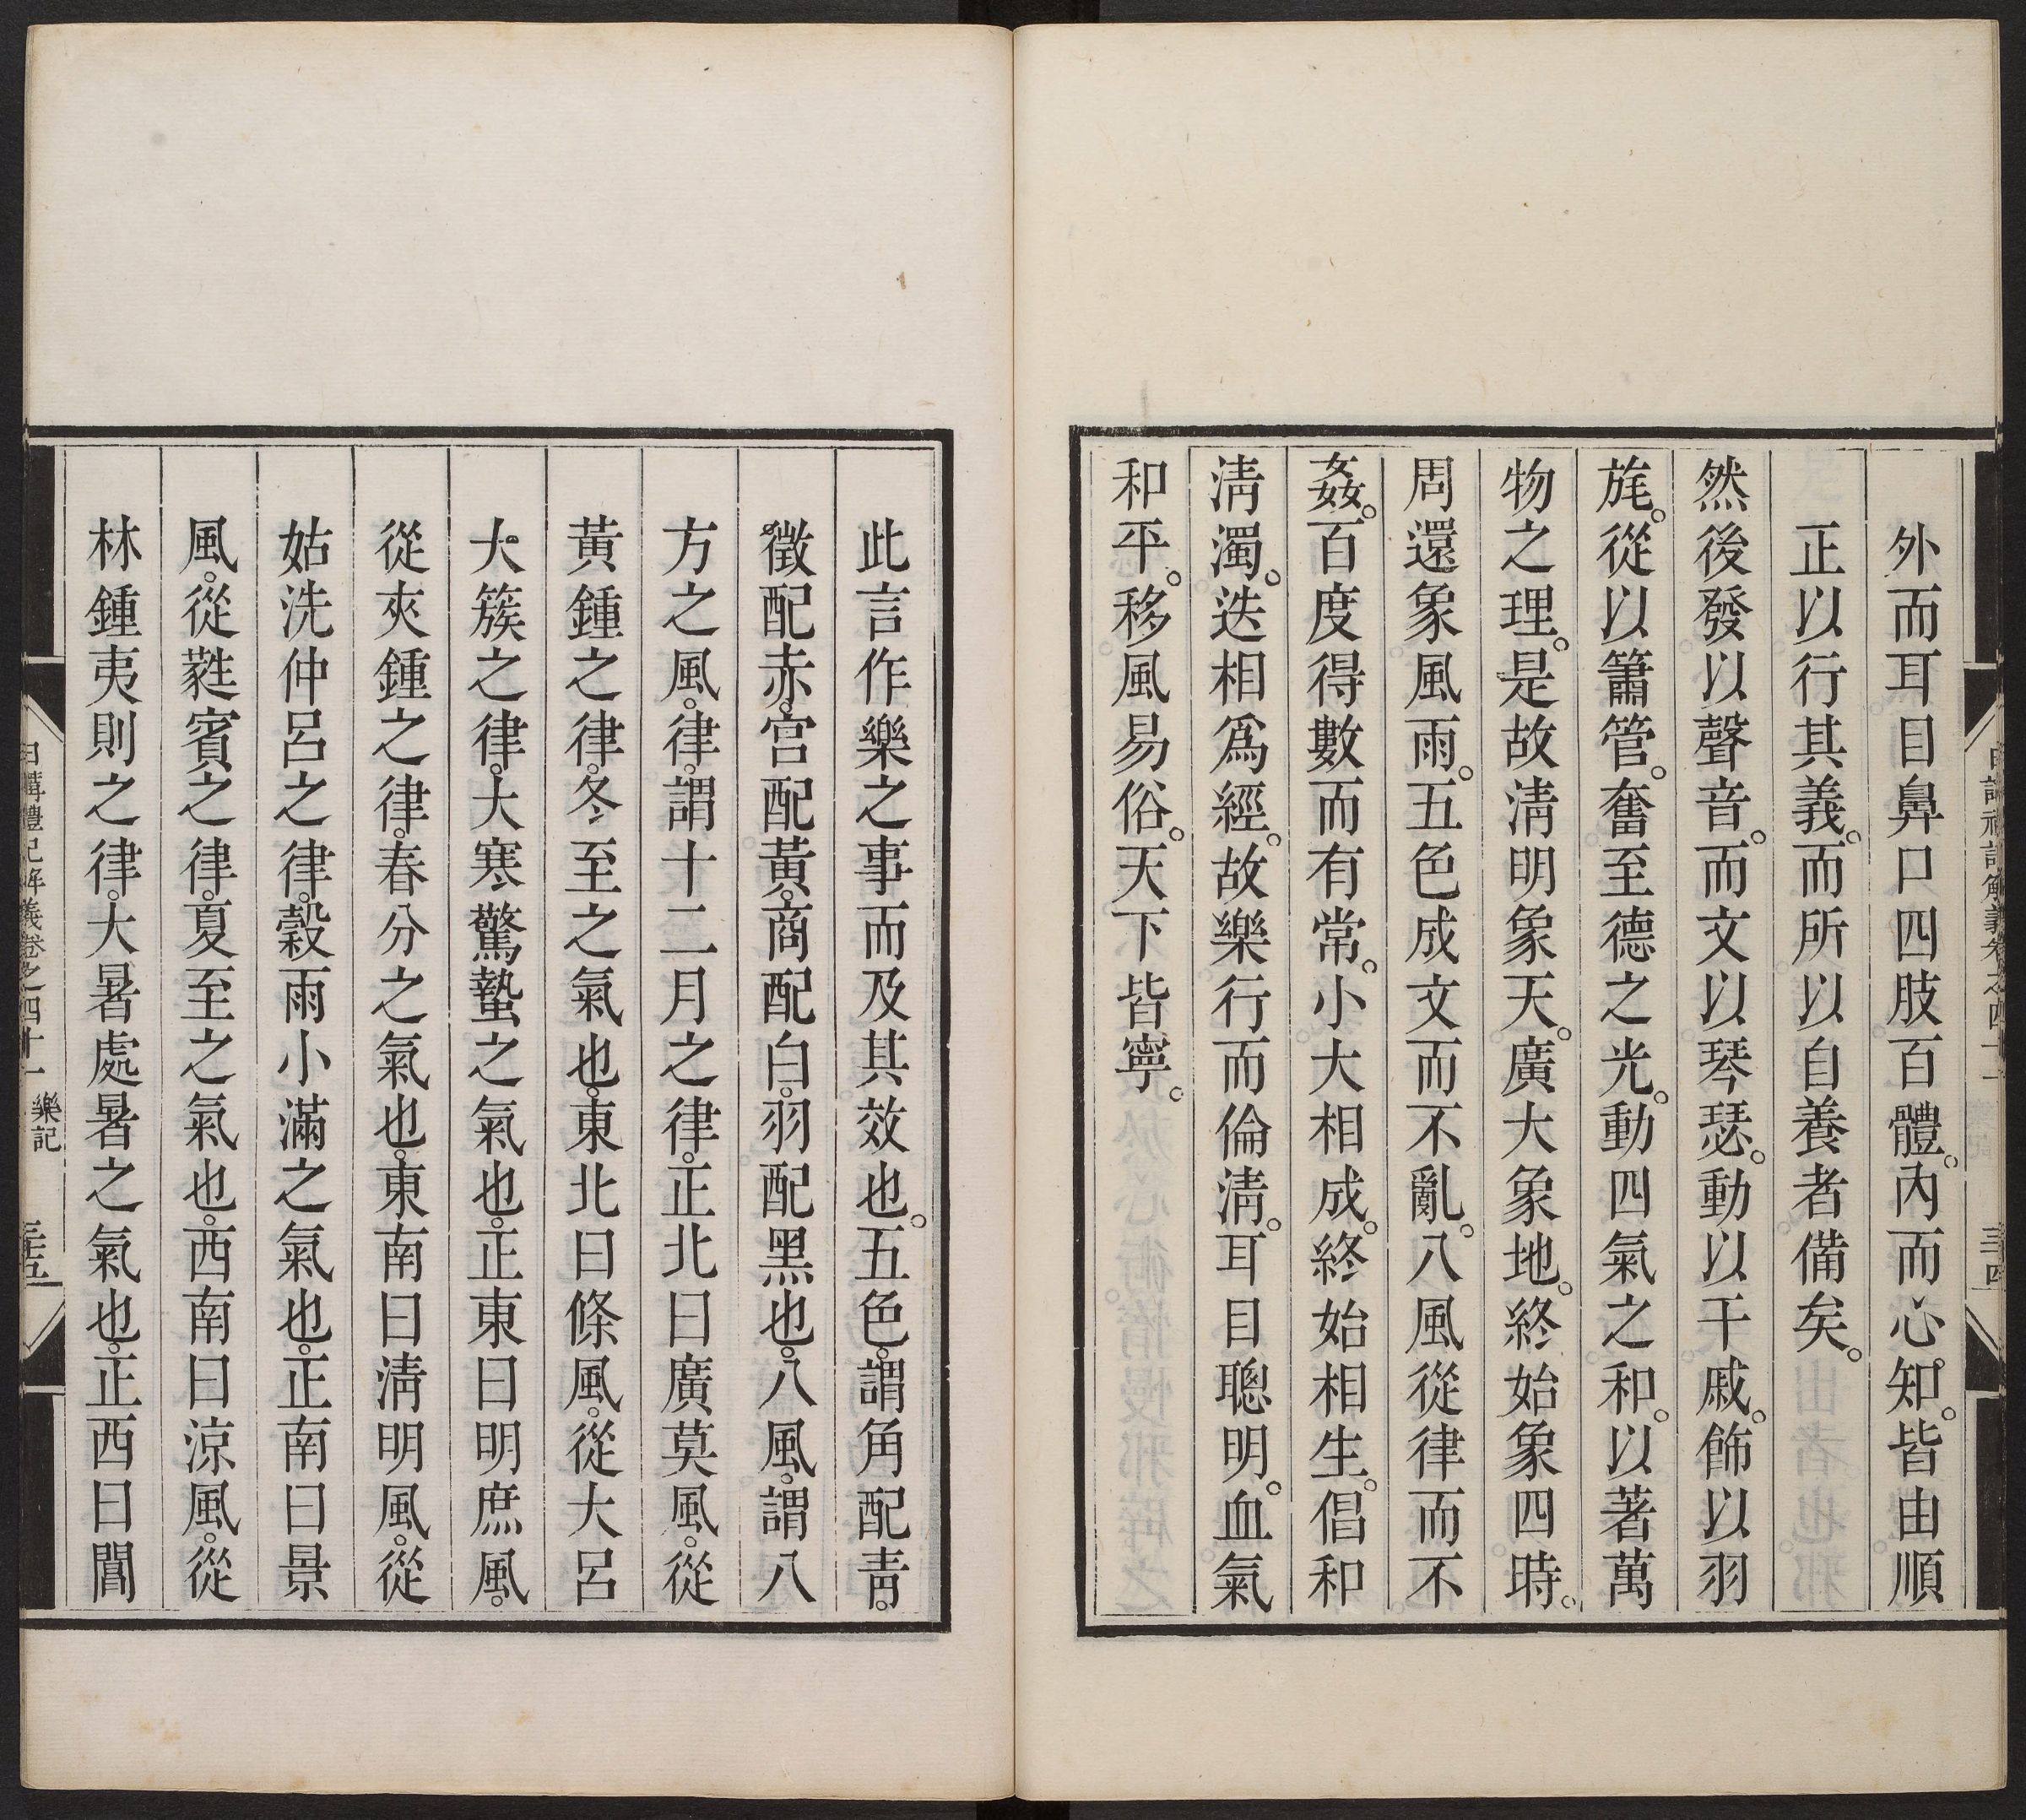 外而耳目鼻口四肢百體。內而心知。皆由順
正以行其義。而所以自養者備矣。
然後發以聲音。而文以琴瑟。動以干戚。飾以羽
旄。從以簫管。奮至德之光。動四氣之和。以著萬
物之理。是故淸明象天。廣大象地。終始象四時。
周還象風雨。五色成文而不亂。八風從律而不
姦。百度得數而有常。小大相成。終始相生。倡和
淸濁。迭相爲經。故樂行而倫淸。耳目聰明。血氣
和平。移風易俗。天下皆寧。
此言作樂之事而及其效也。五色。謂角配靑。
徵配赤。宮配黃。商配白。羽配黑也。八風。謂八
方之風。律。謂十二月之律。正北曰廣莫風。從
黃鍾之律。冬至之氣也。東北曰條風。從大呂
大簇之律。大寒驚蟄之氣也。正東曰明庶風。
從夾鍾之律。春分之氣也。東南曰淸明風。從
姑洗仲呂之律。穀雨小滿之氣也。正南曰景
風。從蕤賓之律。夏至之氣也。西南曰涼風。從
林鍾夷則之律。大暑處暑之氣也。正西曰閶
日講禮記解義卷之四十一 樂記 三十五